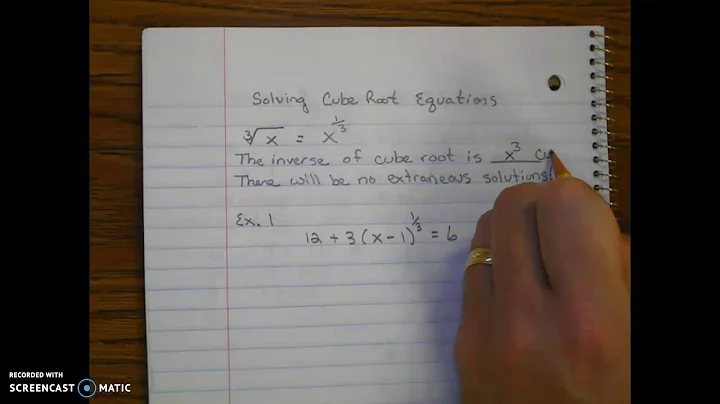 Solving Cube Root Equations
∛x = x^(1/3)
The inverse of cube root is x³ cu
There will be no extraneous solutions!
Ex. 1
12 + 3(x-1)^(1/3) = 6
RECORDED WITH
SCREENCAST MATIC